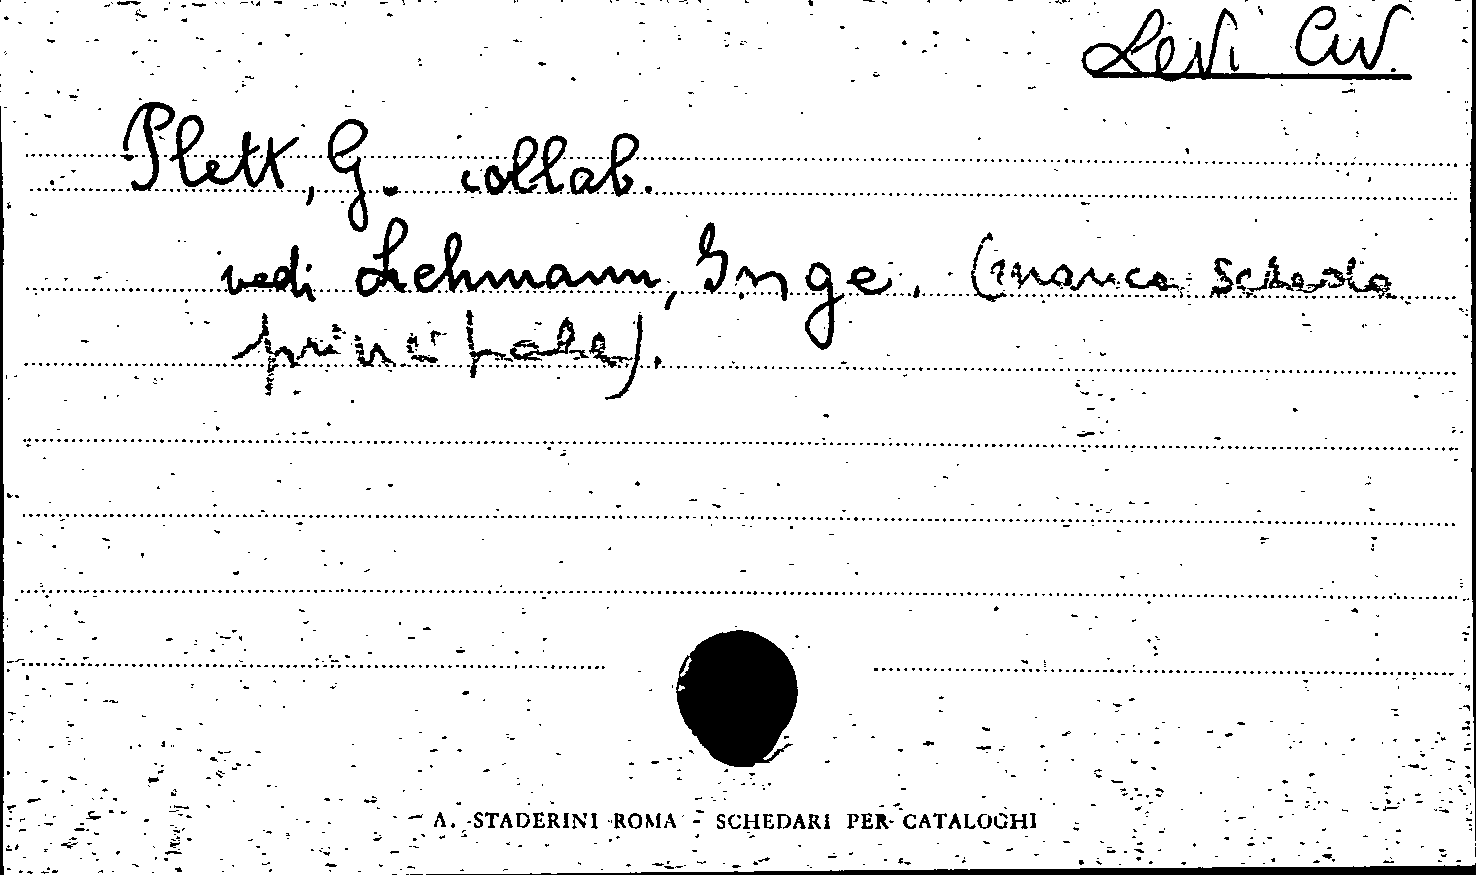 Levi Civ.
Plett, G. collab.
vedi Lehmann, Inge. (manca scheda
principale).
A. STADERINI ROMA - SCHEDARI PER CATALOGHI